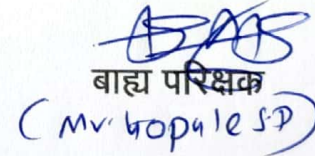 बाह्य परिक्षक
(Mr. Gopale S.D)